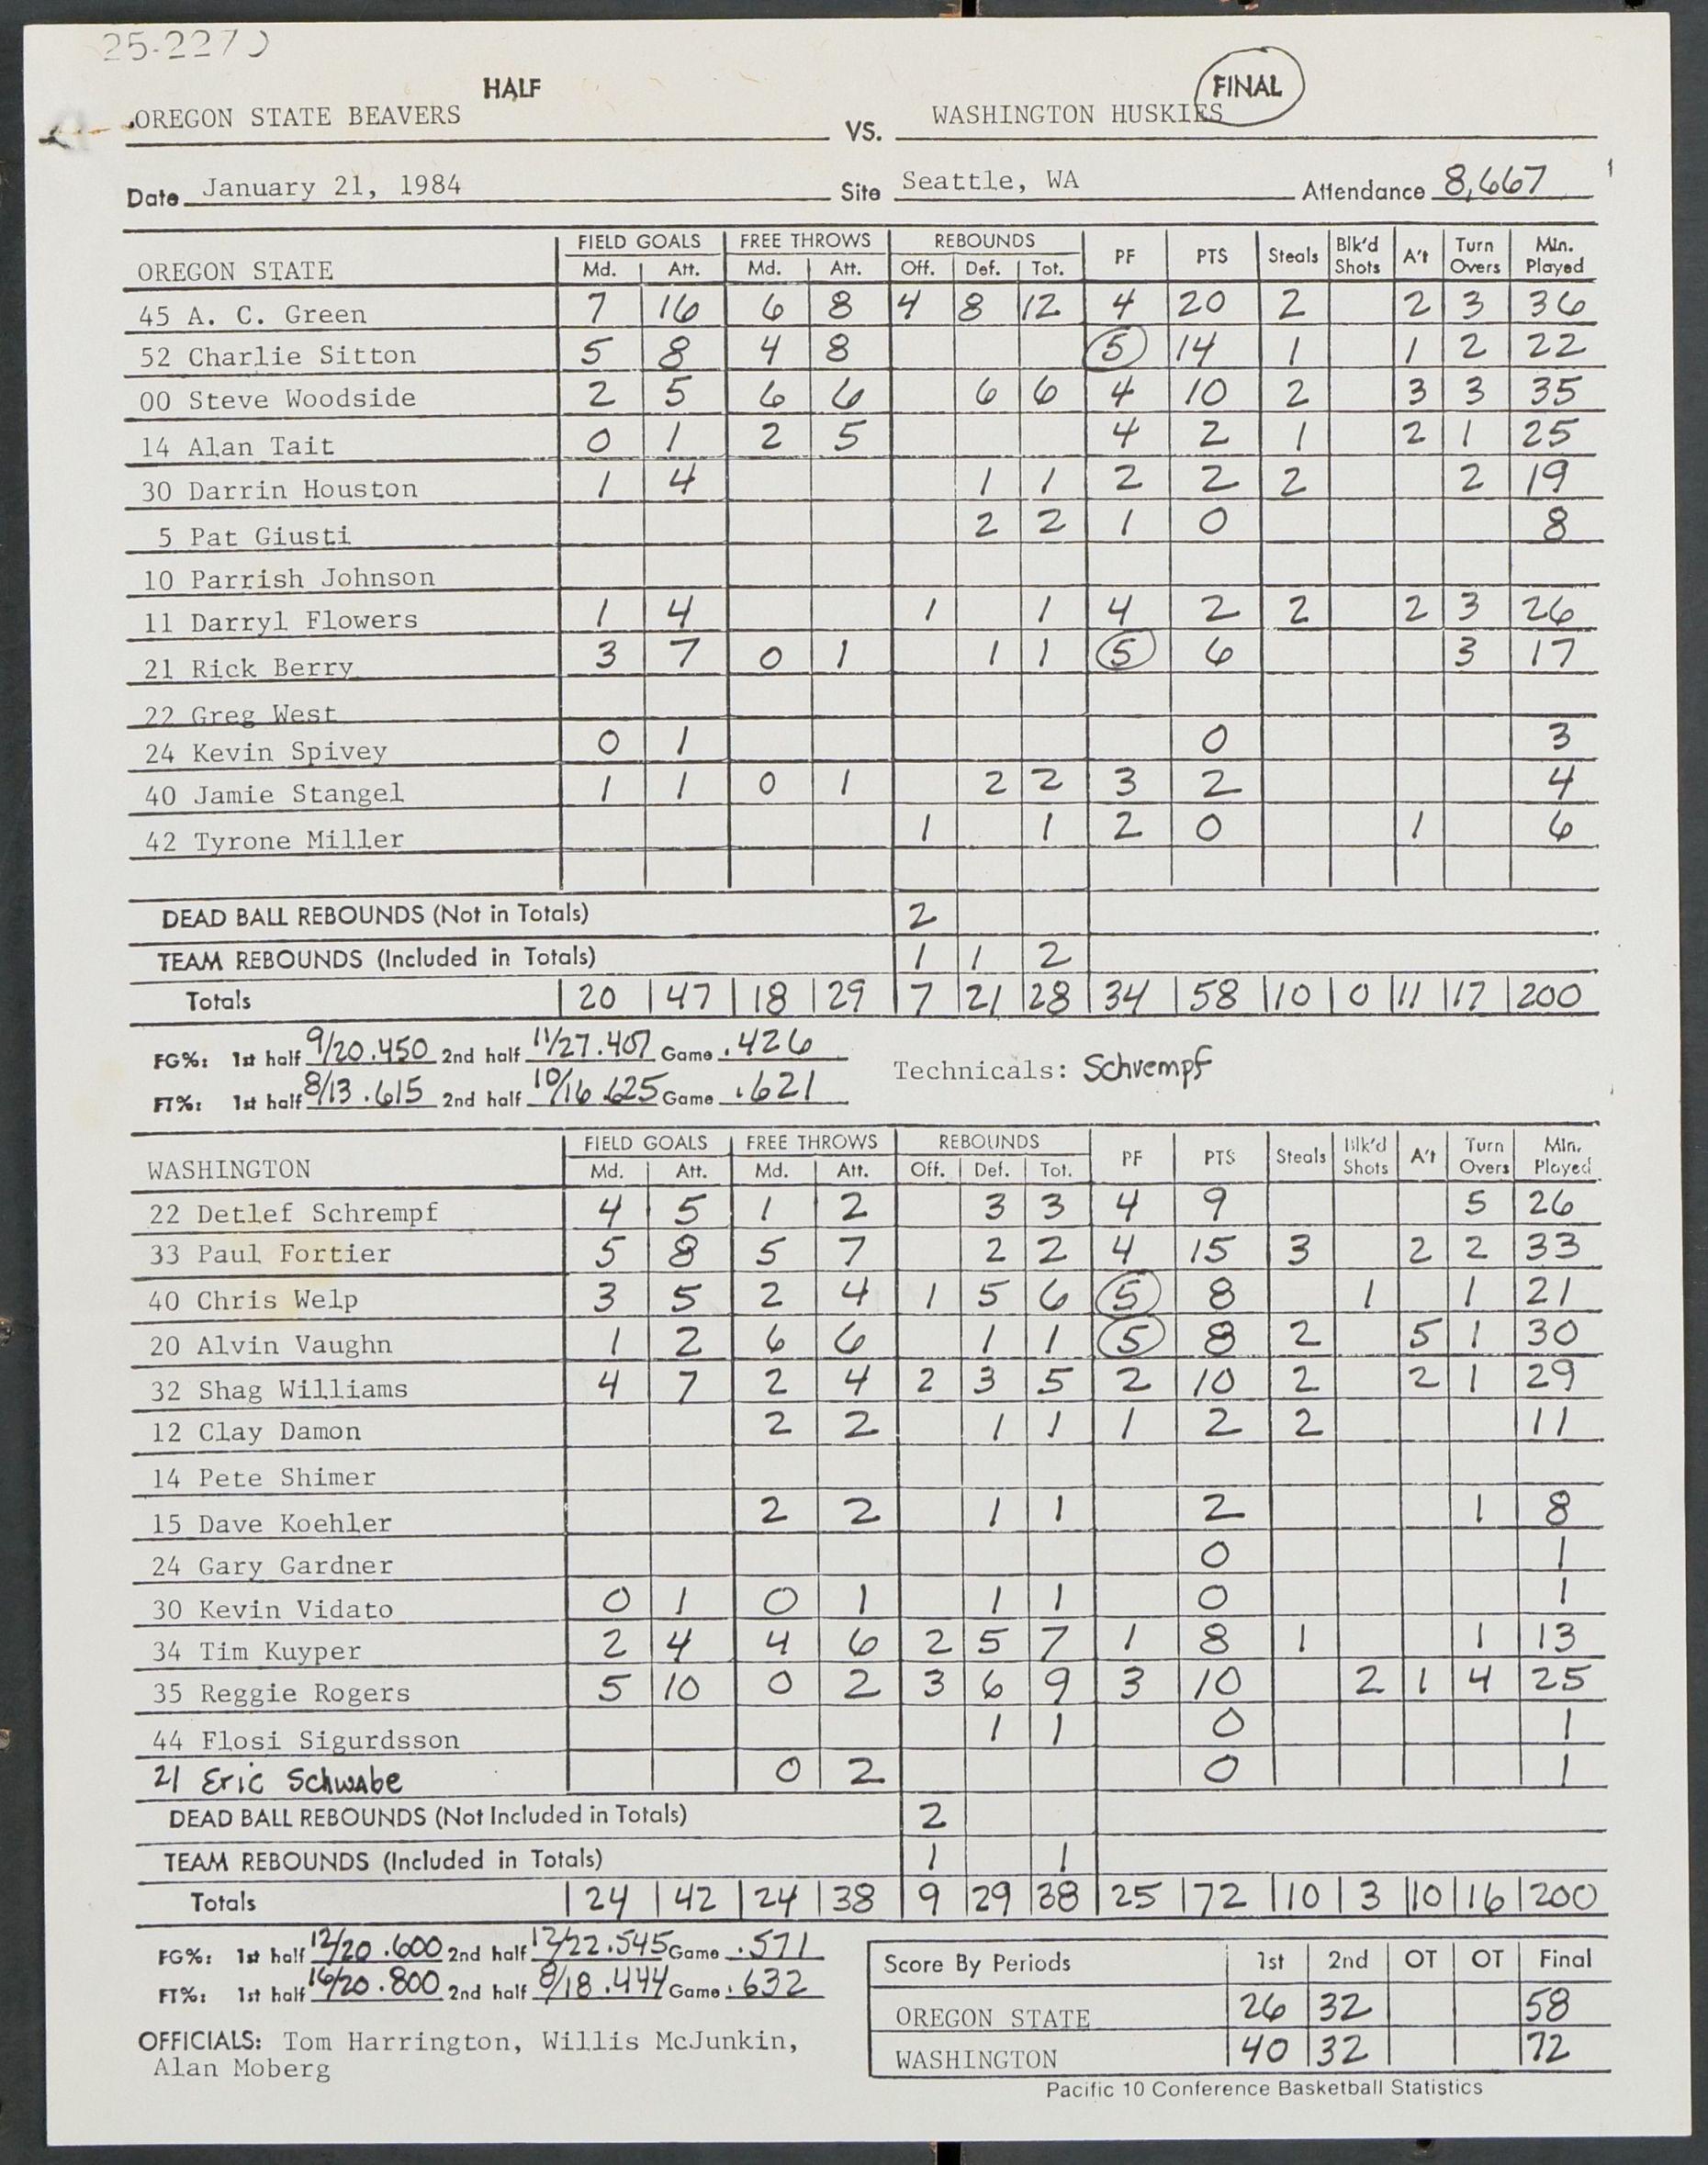 25-2270
HALF FINAL
OREGON STATE BEAVERS VS. WASHINGTON HUSKIES
Date January 21, 1984 Site Seattle, WA Attendance 8,667
FIELD GOALS FREE THROWS REBOUNDS PF PTS Steals Blk'd Shots A't Turn Overs Min. Played
OREGON STATE Md. Att. Md. Att. Off. Def. Tot.
45 A. C. Green 7 16 6 8 4 8 12 4 20 2 2 3 36
52 Charlie Sitton 5 8 4 8 5 14 1 1 2 22
00 Steve Woodside 2 5 6 6 6 6 4 10 2 3 3 35
14 Alan Tait 0 1 2 5 4 2 1 2 1 25
30 Darrin Houston 1 4 1 1 2 2 2 2 19
5 Pat Giusti 2 2 1 0 8
10 Parrish Johnson
11 Darryl Flowers 1 4 1 1 4 2 2 2 3 26
21 Rick Berry 3 7 0 1 1 1 5 6 3 17
22 Greg West
24 Kevin Spivey 0 1 0 3
40 Jamie Stangel 1 1 0 1 2 2 3 2 4
42 Tyrone Miller 1 1 2 0 1 6
DEAD BALL REBOUNDS (Not in Totals) 2
TEAM REBOUNDS (Included in Totals) 1 1 2
Totals 20 47 18 29 7 21 28 34 58 10 0 11 17 200
FG%: 1st half 9/20 .450 2nd half 11/27 .407 Game .426
Technicals: Schrempf
FT%: 1st half 8/13 .615 2nd half 10/16 .625 Game .621
FIELD GOALS FREE THROWS REBOUNDS PF PTS Steals Blk'd Shots A't Turn Overs Min. Played
WASHINGTON Md. Att. Md. Att. Off. Def. Tot.
22 Detlef Schrempf 4 5 1 2 3 3 4 9 5 26
33 Paul Fortier 5 8 5 7 2 2 4 15 3 2 2 33
40 Chris Welp 3 5 2 4 1 5 6 5 8 1 1 21
20 Alvin Vaughn 1 2 6 6 1 1 5 8 2 5 1 30
32 Shag Williams 4 7 2 4 2 3 5 2 10 2 2 1 29
12 Clay Damon 2 2 1 1 1 2 2 11
14 Pete Shimer
15 Dave Koehler 2 2 1 1 2 1 8
24 Gary Gardner 0 1
30 Kevin Vidato 0 1 0 1 1 1 0 1
34 Tim Kuyper 2 4 4 6 2 5 7 1 8 1 1 13
35 Reggie Rogers 5 10 0 2 3 6 9 3 10 2 1 4 25
44 Flosi Sigurdsson 1 1 0 1
21 Eric Schwabe 0 2 0 1
DEAD BALL REBOUNDS (Not Included in Totals) 2
TEAM REBOUNDS (Included in Totals) 1 1
Totals 24 42 24 38 9 29 38 25 72 10 3 10 16 200
FG%: 1st half 12/20 .600 2nd half 12/22 .545 Game .571
FT%: 1st half 16/20 .800 2nd half 8/18 .444 Game .632
Score By Periods 1st 2nd OT OT Final
OREGON STATE 26 32 58
WASHINGTON 40 32 72
OFFICIALS: Tom Harrington, Willis McJunkin,
Alan Moberg
Pacific 10 Conference Basketball Statistics